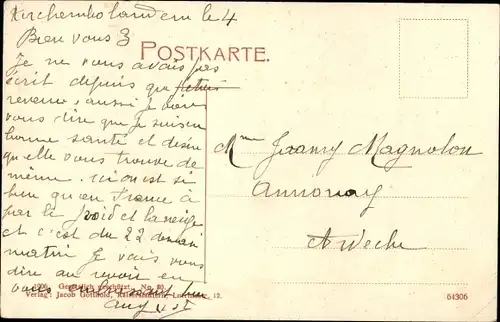 Kirchembolandem le 4
Bien vous 3
POSTKARTE.
Je ne vous avais pas
écrit depuis que j'étais
revenu, aussi je viens
vous dire que je suis en
bonne santé et désire
qu'elle vous trouve de
même. ici on est si
bien qu'en France à
par le froid et la neige
et c'est du 22 demain
matin Je vais vous
dire au revoir en
vous embrassant bien
Aug
Mme Jeanny Magnolon
Annonay
Ardeche
1906 Gesetzlich geschützt. No. 80.
Verlag: Jacob Gotthold, 12.
64306